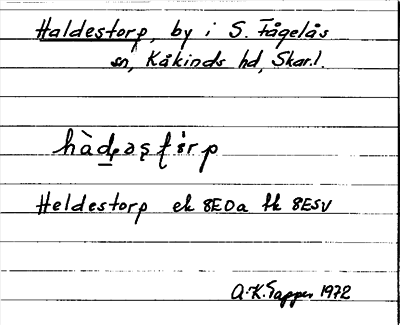 Haldestorp, by i S. Fågelås
sn, Kåkinds hd, Skar.l.
Heldestorp ek 8EDa fk 8ESv
A.K. Tapper 1972